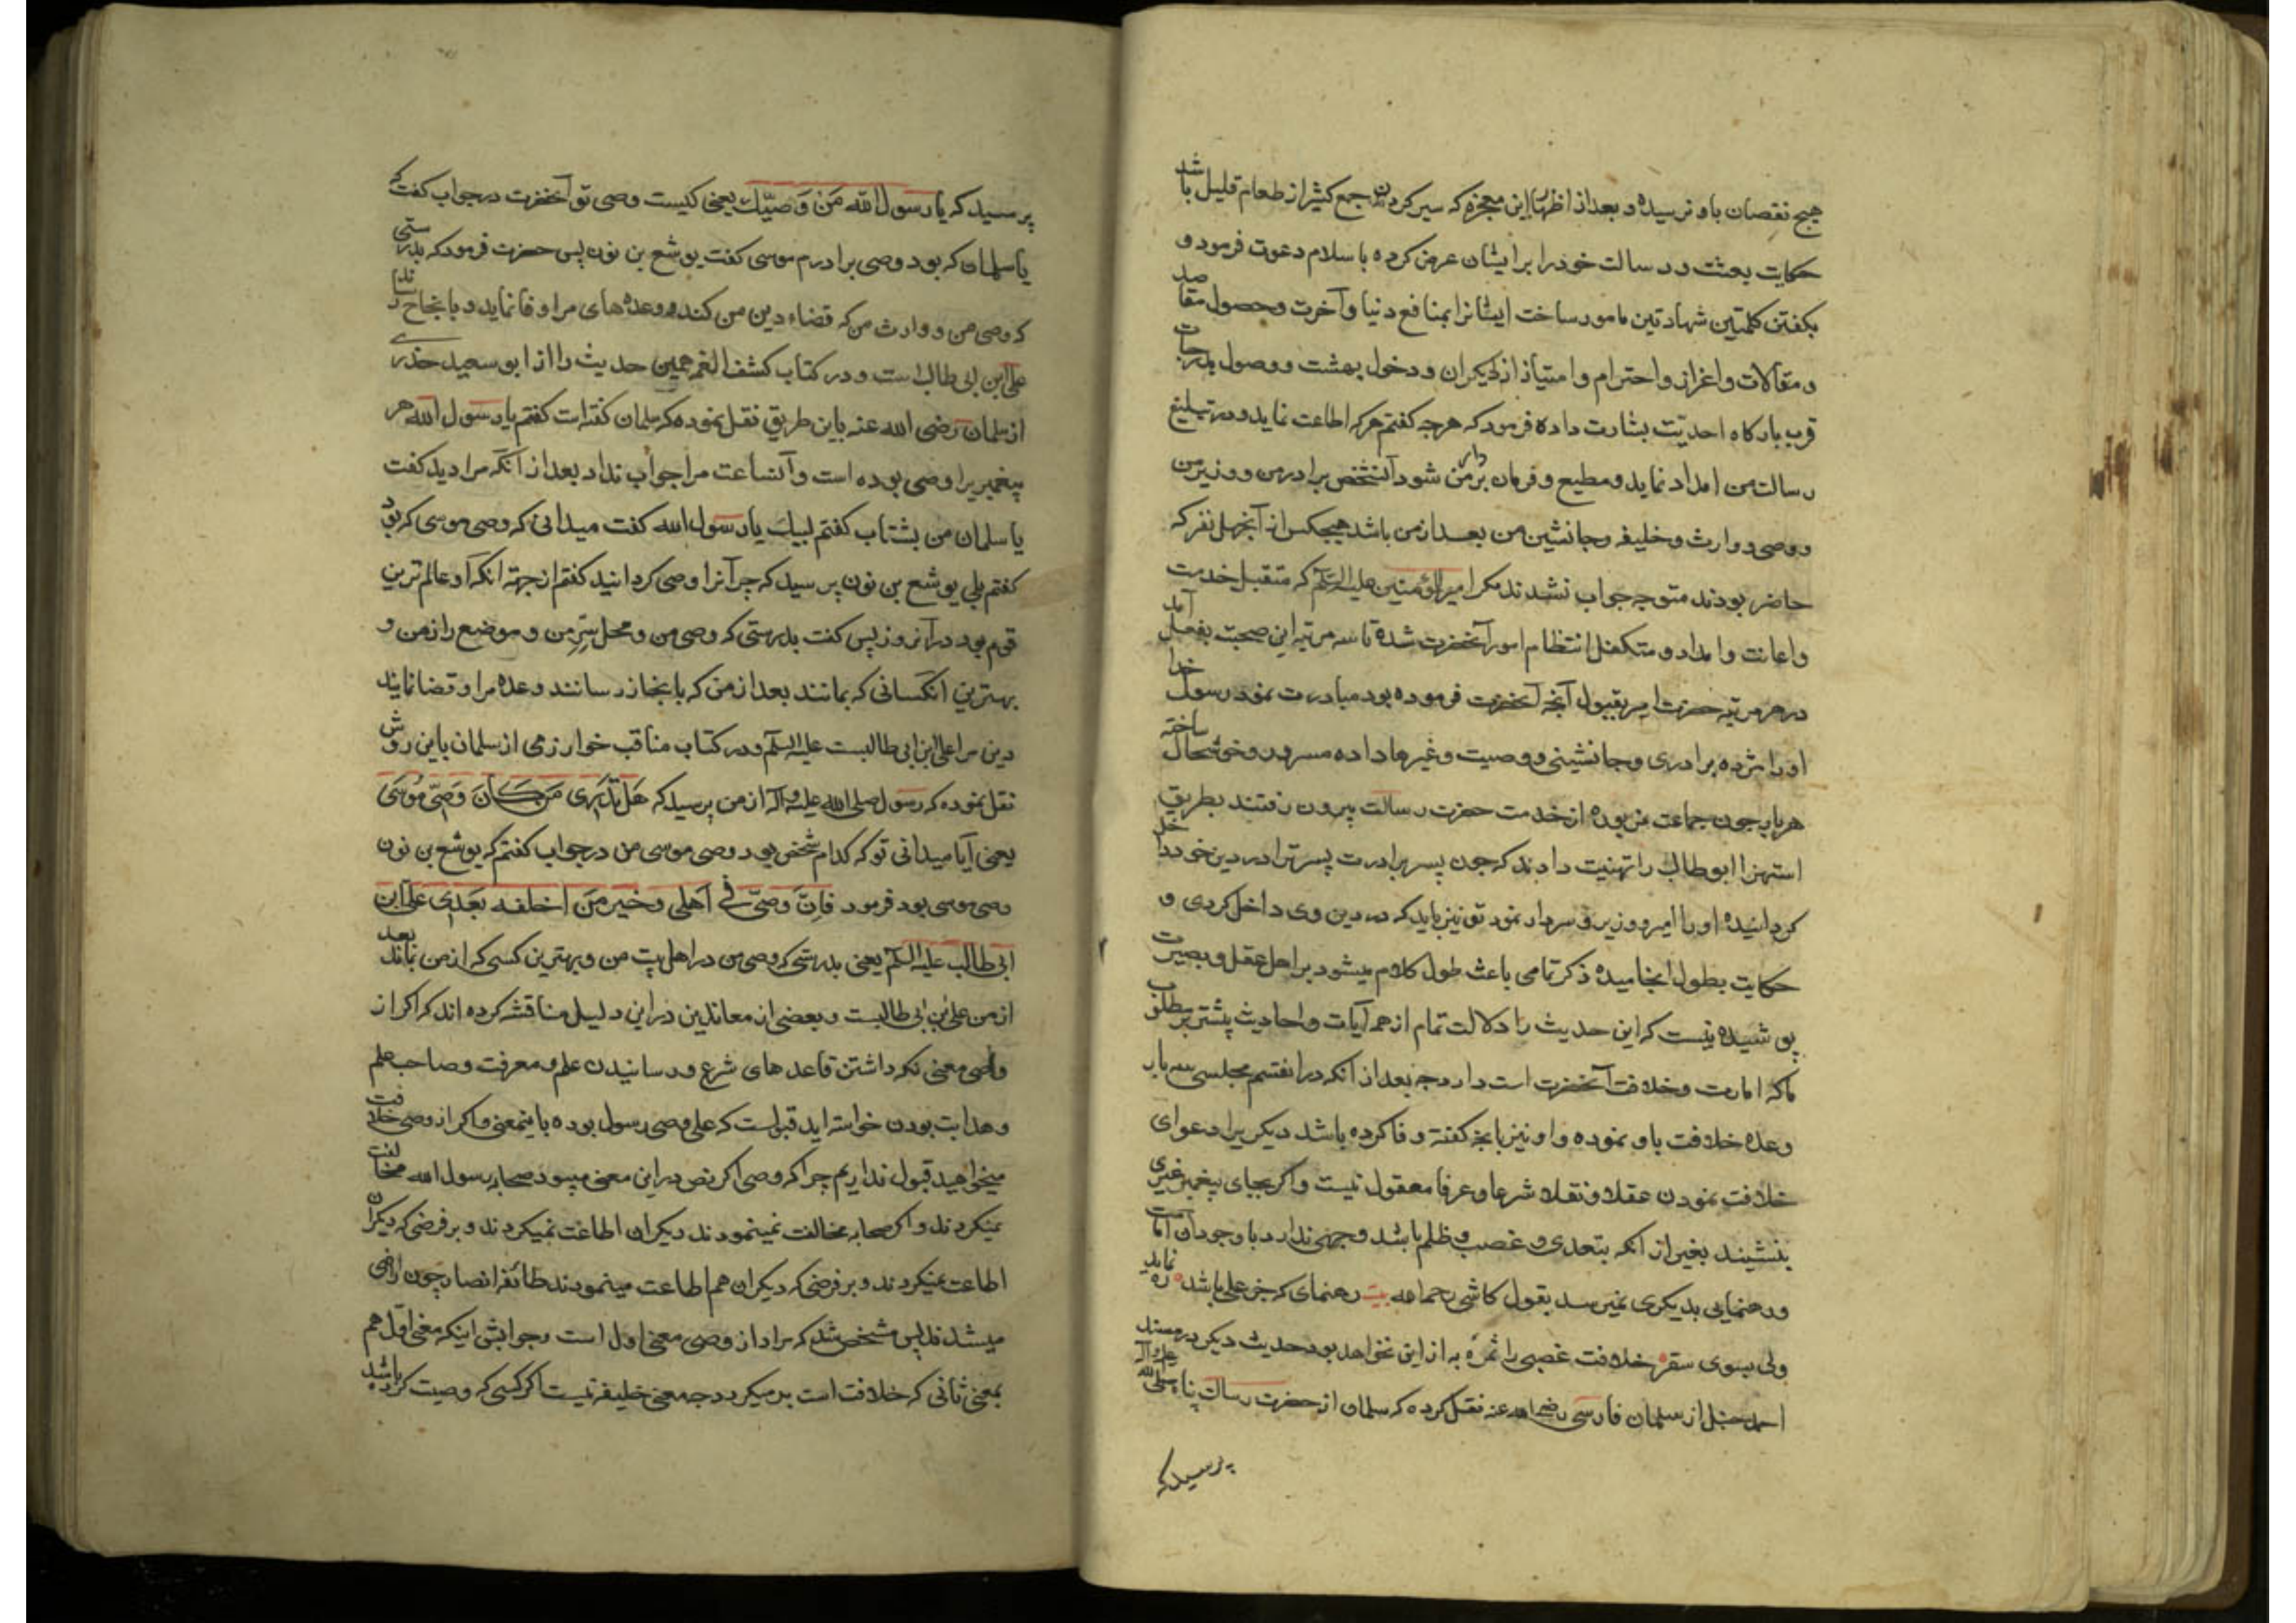 هیچ نقصان باو نرسیده و بعد از اظهار این معجزه که سیر کردن جمع کثیر از طعام قلیل باشد
حکایت بعثت و رسالت خود را بر ایشان عرض کرده باسلام دعوت فرمود و
بکفتن کلمتین شهادتین مامور ساخت ایشانرا بمنافع دنیا و آخرت و حصول مقاصد
و مقالات و اعزاز و احترام و امتیاز از دیکران و دخول بهشت و وصول بدرجات
قرب بارکاه احدیّت بشارت داده فرمود که هرچه کفتم هرکه اطاعت نماید و در تبلیغ
رسالت من امداد نماید و مطیع و فرمان بردار من شود آنشخص برادر من و وزیر من
و وصی و وارث و خلیفه و جانشین من بعد از من باشد هیچکس از آنچهل نفر که
حاضر بودند متوجه جواب نشدند مکر امیرالمؤمنین علیه السلم که متقبل خدمت
و اعانت و امداد و متکفل انتظام امور آنحضرت شده تا سه مرتبه این صحبت بفعل آمد
در هر مرتبه حضرت امیر بقبول آنچه آنحضرت فرموده بود مبادرت نمود رسول خدا
او را مژده برادری و جانشینی و وصیت و غیرها داده مسرور و خوشحال ساخته
هر بار چون جماعت مزبوره از خدمت حضرت رسالت بیرون رفتند بطریق
استهزا ابوطالب را تهنیت دادند که چون پسر برادرت پسر ترا در دین خود داخل
کردانیده او را امیر و وزیر و سردار نمود تو نیز باید که در دین وی داخل کردی و
حکایت بطول انجامیده ذکر تمامی باعث طول کلام میشود بر اهل عقل و بصیرت
پوشیده نیست که این حدیث را دلالت تمام از همه آیات و احادیث پیشتر بر مطلوب
ماکه امارت و خلافت آنحضرت است دارد چه بعد از آنکه در انقسم مجلسی سه بار
وعده خلافت باو نموده و او نیز بانچه کفته وفا کرده باشد دیکریرا دعوای
خلافت نمودن عقلا و نقلا شرعا و عرفا معقول نیست و اکر بجای پیغمبر غیری
بنشیند بغیر از آنکه بتعدی و غصب و ظلم باشد وجهی ندارد با وجود آن امامت
و رهنمایی بدیکری نمیرسد بقول کاشی رحمه الله بیت رهنمای که جز علی باشد ره نماید
ولی بسوی سقر خلافت غصبی را ثمره به از این نخواهد بود حدیث دیکر در مسند
احمد حنبل از سلمان فارسی رضی الله عنه نقل کرده که سلمان از حضرت رسالت پناه صلی الله علیه و آله
پرسید که
پرسید که یا رسول الله مَن وَصیّک یعنی کیست وصی تو آنحضرت در جواب کفت که
یا سلمان که بود وصی برادرم موسی کفت یوشع بن نون پس حضرت فرمود که بدرستی
که وصی من و وارث من که قضاء دین من کند و وعده های مرا وفا نماید و بانجاح رساند
علی ابن ابی طالب است و در کتاب کشف الغمه همین حدیث را از ابو سعید خدری
از سلمان رضی الله عنه باین طریق نقل نموده که سلمان کفته است کفتم یا رسول الله هر
پیغمبریرا وصی بوده است و آنساعت مرا جواب نداد بعد از آنکه مرا دید کفت
یا سلمان من بشتاب کفتم لبیک یا رسول الله کفت میدانی که وصی موسی که بود
کفتم بلی یوشع بن نون پرسید که چرا آنرا وصی کردانید کفتم از جهته انکه او عالم ترین
قوم بود در آنروز پس کفت بدرستی که وصی من و محل سرّ من و موضع راز من و
بهترین انکسانی که بمانند بعد از من که بانجاز رسانند وعده مرا و قضا نماید
دین مرا علی ابن ابی طالبست علیه السلم و در کتاب مناقب خوارزمی از سلمان باین روش
نقل نموده که رسول صلی الله علیه و آله از من پرسید که هَل تَدری مَن کانَ وَصیّ مُوسی
یعنی آیا میدانی تو که کدام شخص بود وصی موسی من در جواب کفتم که یوشع بن نون
وصی موسی بود فرمود فانّ وصیّی فی اَهلی وخیر مَن اخلفه بَعدی علی ابن
ابی طالب علیه السلم یعنی بدرستی که وصی من در اهل بیت من و بهترین کسی که از من بماند بعد
از من علی ابن ابی طالبست و بعضی از معاندین در این دلیل مناقشه کرده اند که اکر از
وصی معنی نکه داشتن قاعدهای شرع و رسانیدن علم و معرفت و صاحب علم
و هدایت بودن خواسته اید قبولست که علی وصی رسول بوده باینمعنی و اکر از وصی خلافت
میخواهید قبول نداریم چرا که وصی اکر نص در این معنی میبود صحابه رسول الله مخالفت
نمیکردند و اکر صحابه مخالفت نمینمودند دیکران اطاعت نمیکردند و بر فرضی که دیکران
اطاعت نمیکردند و بر فرضی که دیکران هم اطاعت مینمودند طائفه انصار چون راضی
میشدند پس مشخص شد که مراد از وصی معنی اول است و جوابش اینکه معنی اول هم
بمعنی ثانی که خلافت است بر میکردد چه معنی خلیفه نیست مکر کسی که وصیت کرده باشد